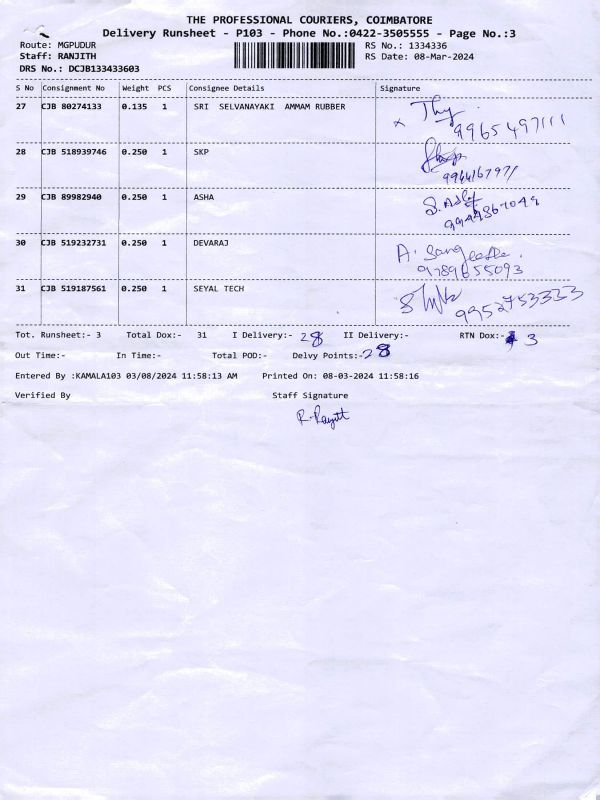 THE PROFESSIONAL COURIERS, COIMBATORE
Delivery Runsheet - P103 - Phone No.:0422-3505555 - Page No.:3
Route: MGPUDUR RS No.: 1334336
Staff: RANJITH RS Date: 08-Mar-2024
DRS No.: DCJB133433603
S No Consignment No Weight PCS Consignee Details Signature
27 CJB 80274133 0.135 1 SRI SELVANAYAKI AMMAM RUBBER
x 9965497111
28 CJB 518939746 0.250 1 SKP
29 CJB 89982940 0.250 1 ASHA
30 CJB 519232731 0.250 1 DEVARAJ A. Sangeetha.
9789655093
31 CJB 519187561 0.250 1 SEYAL TECH 9952753333
Tot. Runsheet:- 3 Total Dox:- 31 I Delivery:- 28 II Delivery:- RTN Dox:- 3
Out Time:- In Time:- Total POD:- Delvy Points:- 28
Entered By :KAMALA103 03/08/2024 11:58:13 AM Printed On: 08-03-2024 11:58:16
Verified By Staff Signature